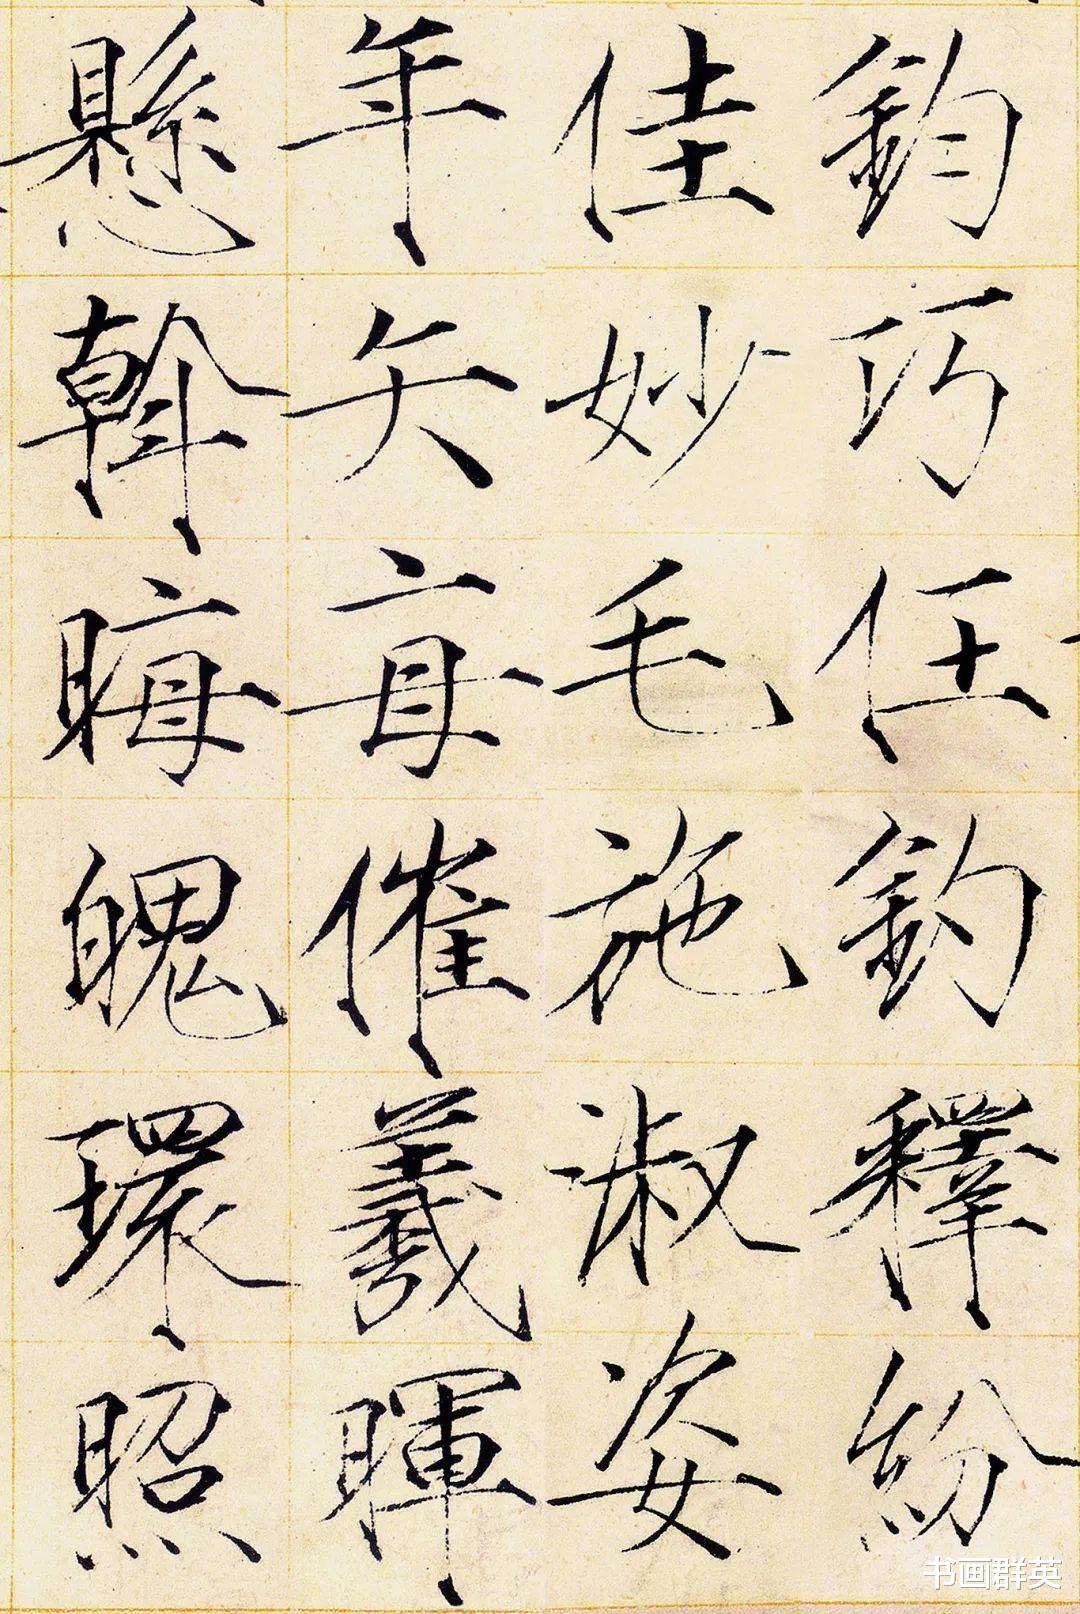 鈞巧任釣釋紛
佳妙毛施淑姿
年矢每催羲暉
懸斡晦魄環照
书画群英